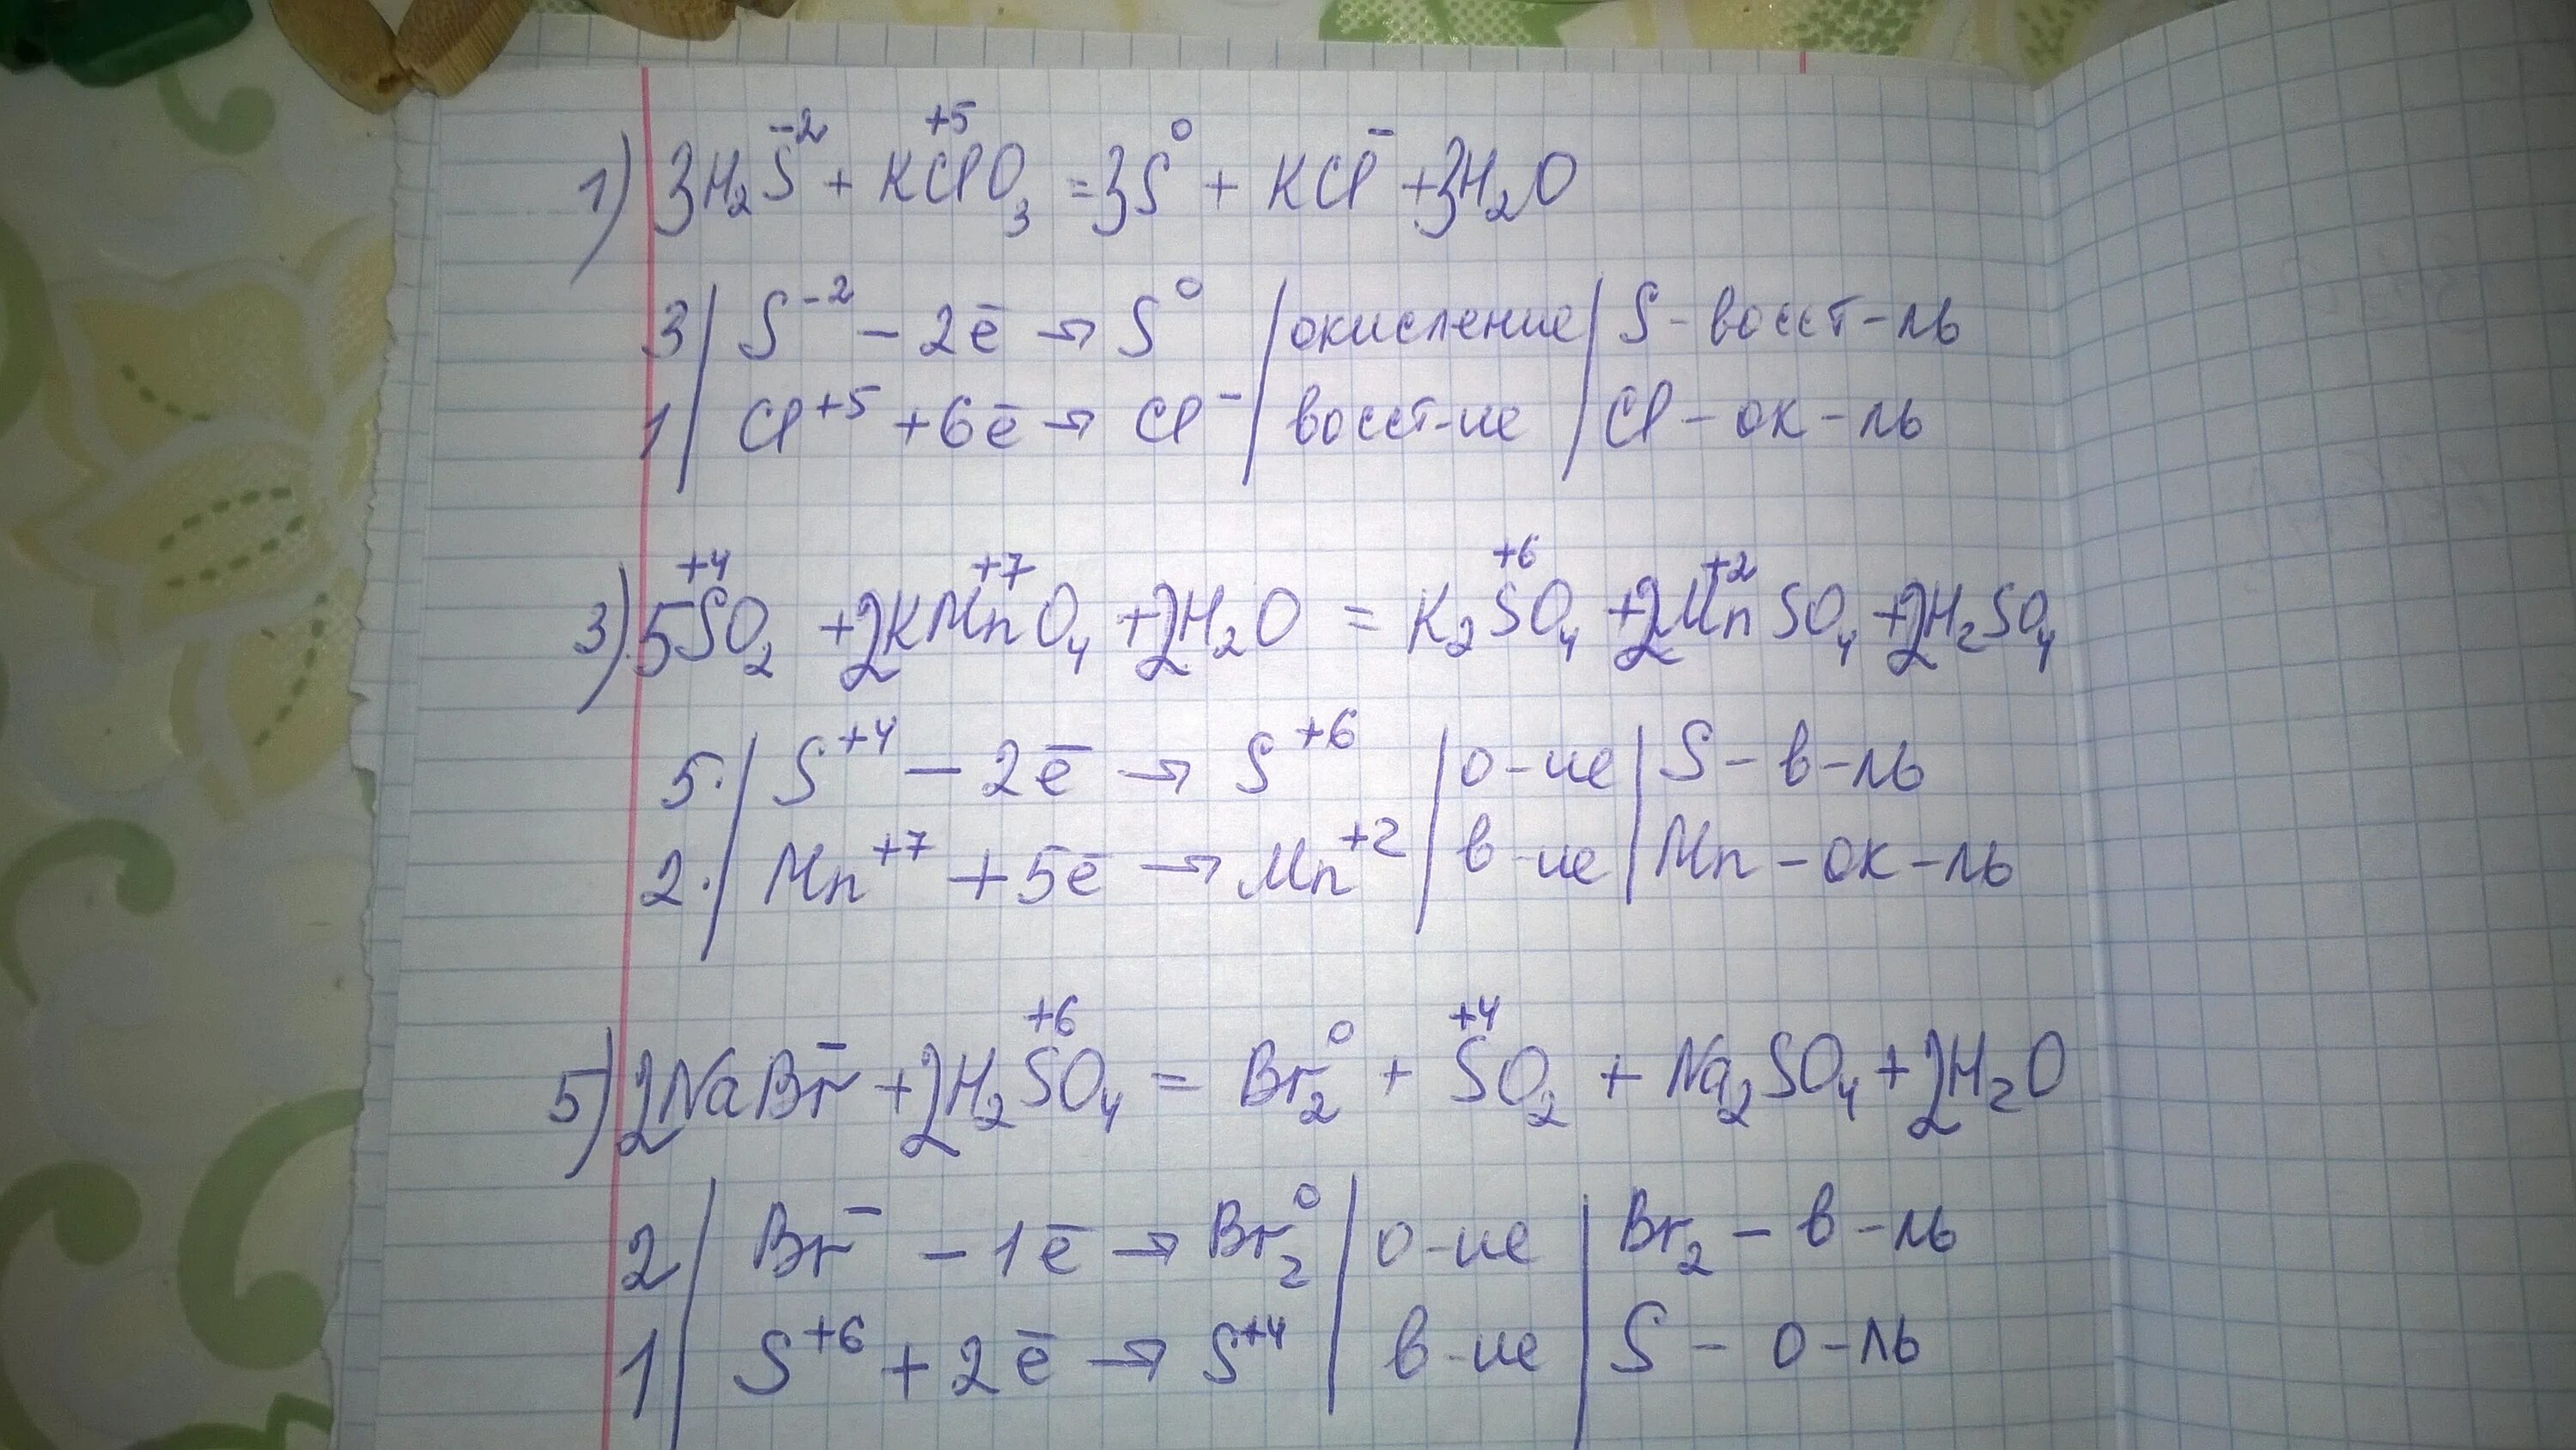 1) 3H₂S⁻² + KCl⁺⁵O₃ = 3S⁰ + KCl⁻ + 3H₂O
3 | S⁻² − 2ē → S⁰ | окисление | S - восст-ль
1 | Cl⁺⁵ + 6ē → Cl⁻ | восст-ие | Cl - ок-ль
3) 5S⁺⁴O₂ + 2KMn⁺⁷O₄ + 2H₂O = K₂S⁺⁶O₄ + 2Mn⁺²SO₄ + 2H₂SO₄
5. | S⁺⁴ − 2ē → S⁺⁶ | о-ие | S - в-ль
2. | Mn⁺⁷ + 5ē → Mn⁺² | в-ие | Mn - ок-ль
5) 2NaBr⁻ + 2H₂S⁺⁶O₄ = Br₂⁰ + S⁺⁴O₂ + Na₂SO₄ + 2H₂O
2 | Br⁻ − 1ē → Br₂⁰ | о-ие | Br₂ - в-ль
1 | S⁺⁶ + 2ē → S⁺⁴ | в-ие | S - о-ль